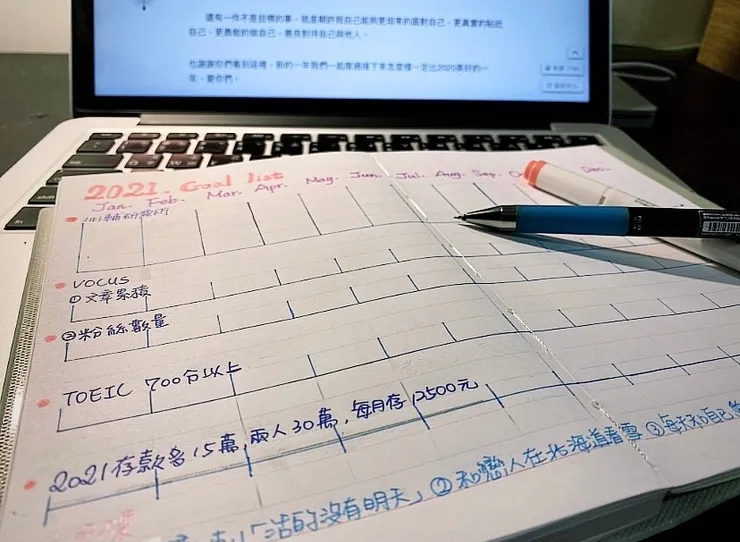 還有一件不是目標的事，就是期許我自己能夠更坦率的面對自己，更真實的貼近
自己，更勇敢的做自己，善良對待自己與他人。
也謝謝你們看到這裡，新的一年我們一起度過接下來怎麼樣一定比2020美好的一
年，愛你們。
2021. Goal list
Jan. Feb. Mar. Apr. May. Jun. Jul. Aug. Sep. Dec.
VOCUS
①文章累積
②粉絲數量
TOEIC 700分以上
2021存款多15萬，兩人30萬，每月存12500元
「活的沒有明天」②和戀人在北海道看雪③每天和自己